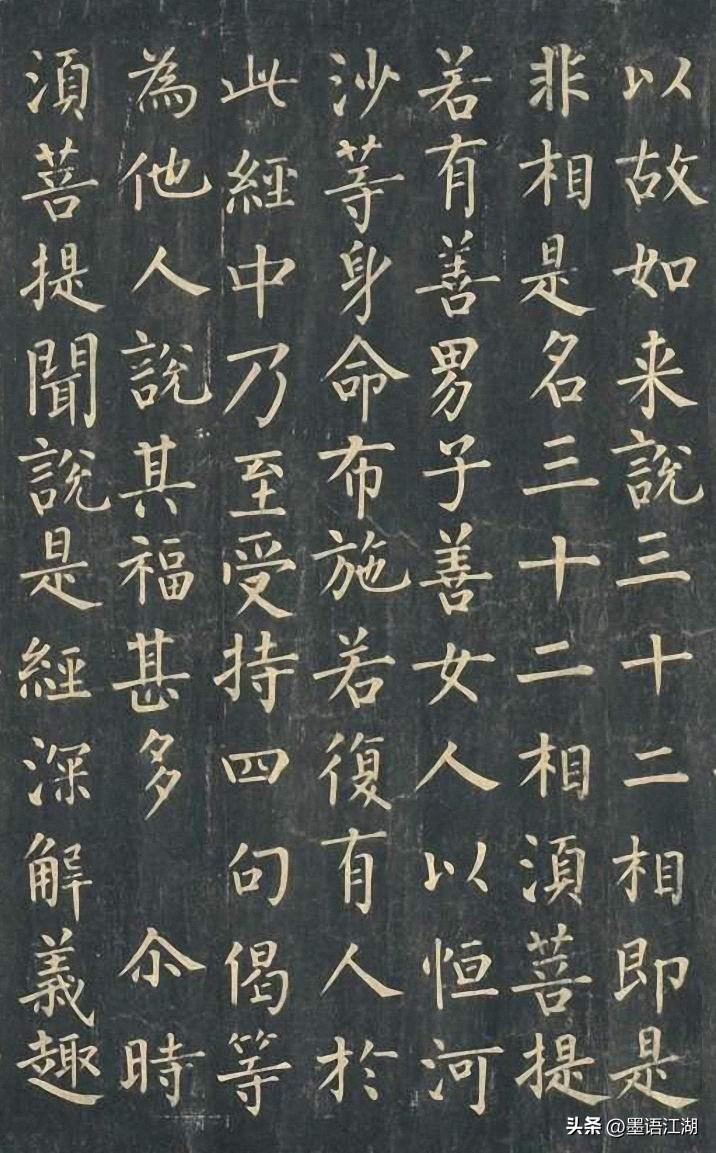 以故如来說三十二相即是
非相是名三十二相湏菩提
若有善男子善女人以恒河
沙等身命布施若復有人於
此經中乃至受持四句偈等
為他人說其福甚多 尒時
湏菩提聞說是經深解義趣
头条 @墨语江湖